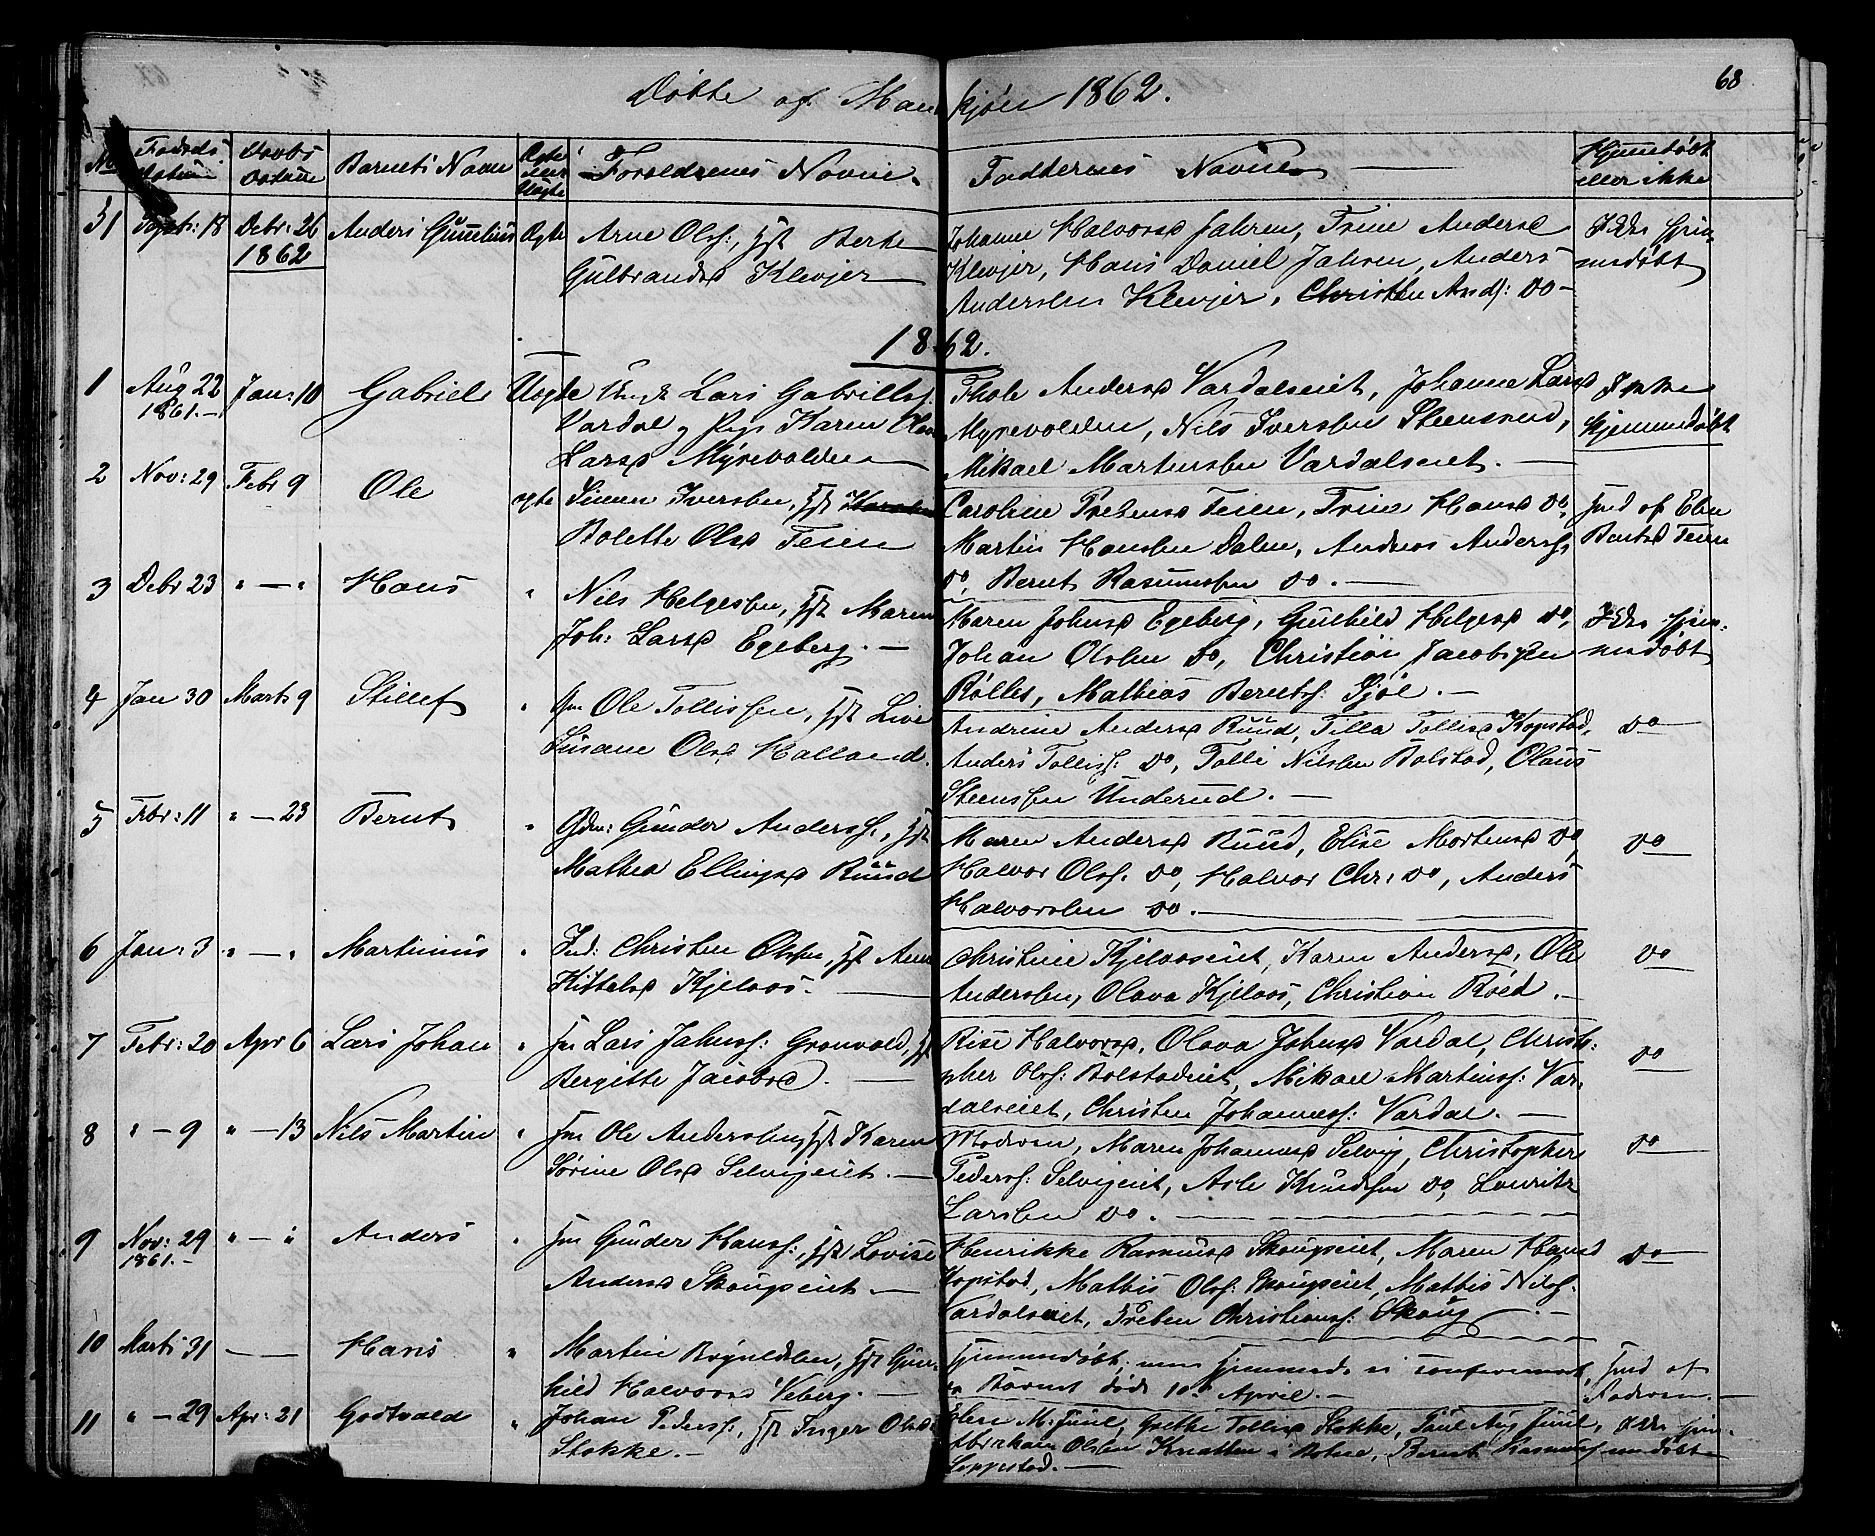 68
Døbte af Mankjøn 1862.
No Fødsels Datum Daabs Datum Barnets Navn Ægte eller Uægte Forældrenes Navne. Faddernes Navne Hjemmedøbt eller ikke
31 Septbr: 18 Debr: 26 1862 Anders Gunelius Ægte Arne Olsf:, Hst Berte
Gulbrandsd Klevjer
Johanne Halvorsd Jahren, Trine Andersd
Klevjer, Hans Daniel Jahren, Anders
Andersen Klevjer, Christen Andf: do
Ikke hjemmedøbt
1862.
1 Aug 22 1861. Jan: 10 Gabriel Uægte Ungk Lars Gabrielsf.
Vardal og Pige Karen Olava
Larsd Myrevolden
Thole Andersd Vardalseiet, Johanne Larsd
Myrevolden, Nils Iversen Steensrud,
Mikael Martensen Vardalseiet.
Ikke
hjemmedøbt
2 Nov: 29 Febr 9 Ole ægte Simen Iversen, Hst
Bolette Olsd Teien
Caroline Prebensd Teien, Trine Hansd do,
Martin Hansen Dalen, Andreas Andersf
do, Bernt Rasmussen do.
Hmd af Elen
Berntsd Teien
3 Debr 23 " — " Hans " Nils Helgesen, Hst Maren
Joh: Larsd Egeberg.
Maren Johnsd Egeberg, Gulhild Helgesd do,
Johan Olsen do, Christian Jacobsen
Rølles, Mathias Berntsf: Gjøl.
Ikke hjemmedøbt
4 Jan 30 Marts 9 Stillef " Hm Ole Tollissen, Hst Live
Susane Olsd Halland.
Andrine Andersd Ruud, Tilla Tollisd Kopstad,
Anders Tollisf: do, Tolli Nilsen Bolstad, Olaus
Steensen Underud.
do
5 Febr: 11 " — 23 Bernt " Gdm: Gunder Andersf:, Hst
Mathea Ellingsd Ruud
Maren Andersd Ruud, Elise Mortensd do,
Halvor Olsf: do, Halvor Chr: do, Anders
Halvorsen do.
do
6 Jan: 3 " — " Martinius " Ind: Christen Olsen, Hst Anne
Kittelsd Kjelaas.
Christine Kjelaaseiet, Karen Andersd, Ole
Andersen, Olava Kjelaas, Christian Røed.
do
7 Febr: 20 Apr 6 Lars Johan " Hm Lars Johnsf: Gronvold, Hst
Bergitte Jacobsd.
Rise Halvorsd, Olava Johnsd Vardal, Christopher
Olsf: Bolstadeiet, Mikael Martinsf: Vardalseiet,
Christen Johannesf: Vardal.
do
8 " — 9 " — 13 Nils Martin " Hm Ole Andersen, Hst Karen
Sørine Olsd Selvigeiet.
Moderen, Maren Johannesd Selvig, Christopher
Pedersf: Selvigeiet, Asle Knudsen do, Lauritz
Larsen do.
do
9 Nov: 29 1861. " — " Anders " Hm Gunder Hansf:, Hst Lovise
Andersd Skougseiet
Henrikke Rasmusd Skougseiet, Maren Hansd
Kopstad, Mathis Olsf: Skougseiet, Mathis Nilsf.
Vardalseiet, Preben Christiansf: Skoug
do
10 Marts 31 — Hans " Martin Bøyuldsen, Hst Gunhild
Halvorsd Veberg.
Hjemmedøbt; men Hjemmed: ei confirmeret,
da Barnet døde 10de April.
Hmd af
Faderen.
11 " — 29 Apr: 21 Godtvald " Johan Pedersf:, Hst Inger Olsd
Stokke.
Elen M. Juul, Grethe Tollisd Stokke, Paul Aug Juul,
Abraham Olsen Knatten i Botne, Bernt Rasmusf
Seppestad.
Ikke hjemmedøbt